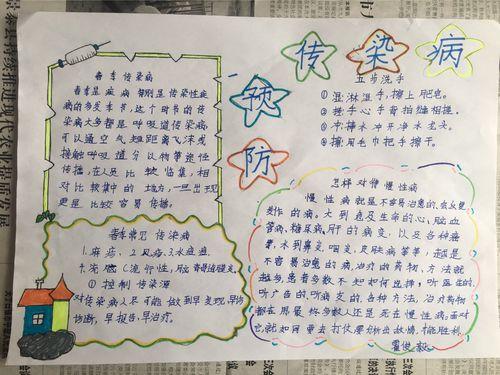 预
防
传
染
病
春季传染病
春季是疾病特别是传染性疾
病的多发季节，这个时节的传
染病大多都是呼吸道传染病，
可以通空气短距离飞沫或
接触呼吸道分以物等途性
传播，在人员比较临重，相
对比较集中的地方，一旦出现
更是比较容易传播。
春季常见传染病
1.麻疹，2.风疹，3.水痘，
①控制传染源
对传染病人尽可能做到早发现，早
诊断，早报告，早治疗。
五步洗手
①湿淋湿手，擦上肥皂。
②搓手心手背拍
③冲掉水冲开净水龙头。
④擦用毛巾把手擦干。
怎样对待慢性病
慢性病就是不容易治愈的，会反复
发作的病。大到危及生命的心，脑血
管病，糖尿病，肝的病变，以及各种癌
症，小到鼻炎咽炎，皮肤病等等，越是
不容易治愈的病，治疗的药物，方法就
越多，患者多数不知如何选择，听医生的，
听广告的，听病友的，各种方法，治疗药物
都在用，最终多数人还是死在慢性病，面对
它，就如同要去打仗